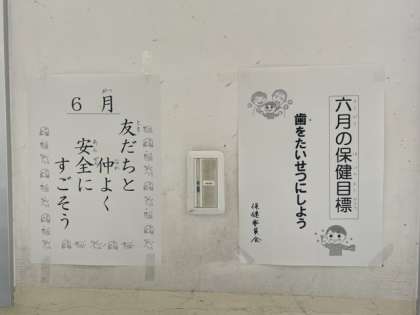 6月
友だちと
仲よく
安全に
すごそう
六月の保健目標
歯をたいせつにしよう
保健委員会